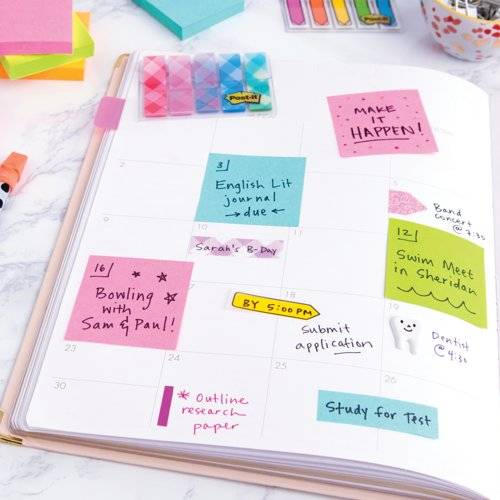 Post-it
Post-it
MAKE
IT
HAPPEN!
2
3
English Lit
journal
due
5
Band
concert
@ 7:30
9
10
11
12
Sarah's B-Day
Swim Meet
in Sheridan
16
Bowling
with
Sam & Paul!
17
18
19
BY 5:00 PM
Submit
application
Dentist
@ 4:30
23
24
25
26
* Outline
research
paper
Study for Test
30